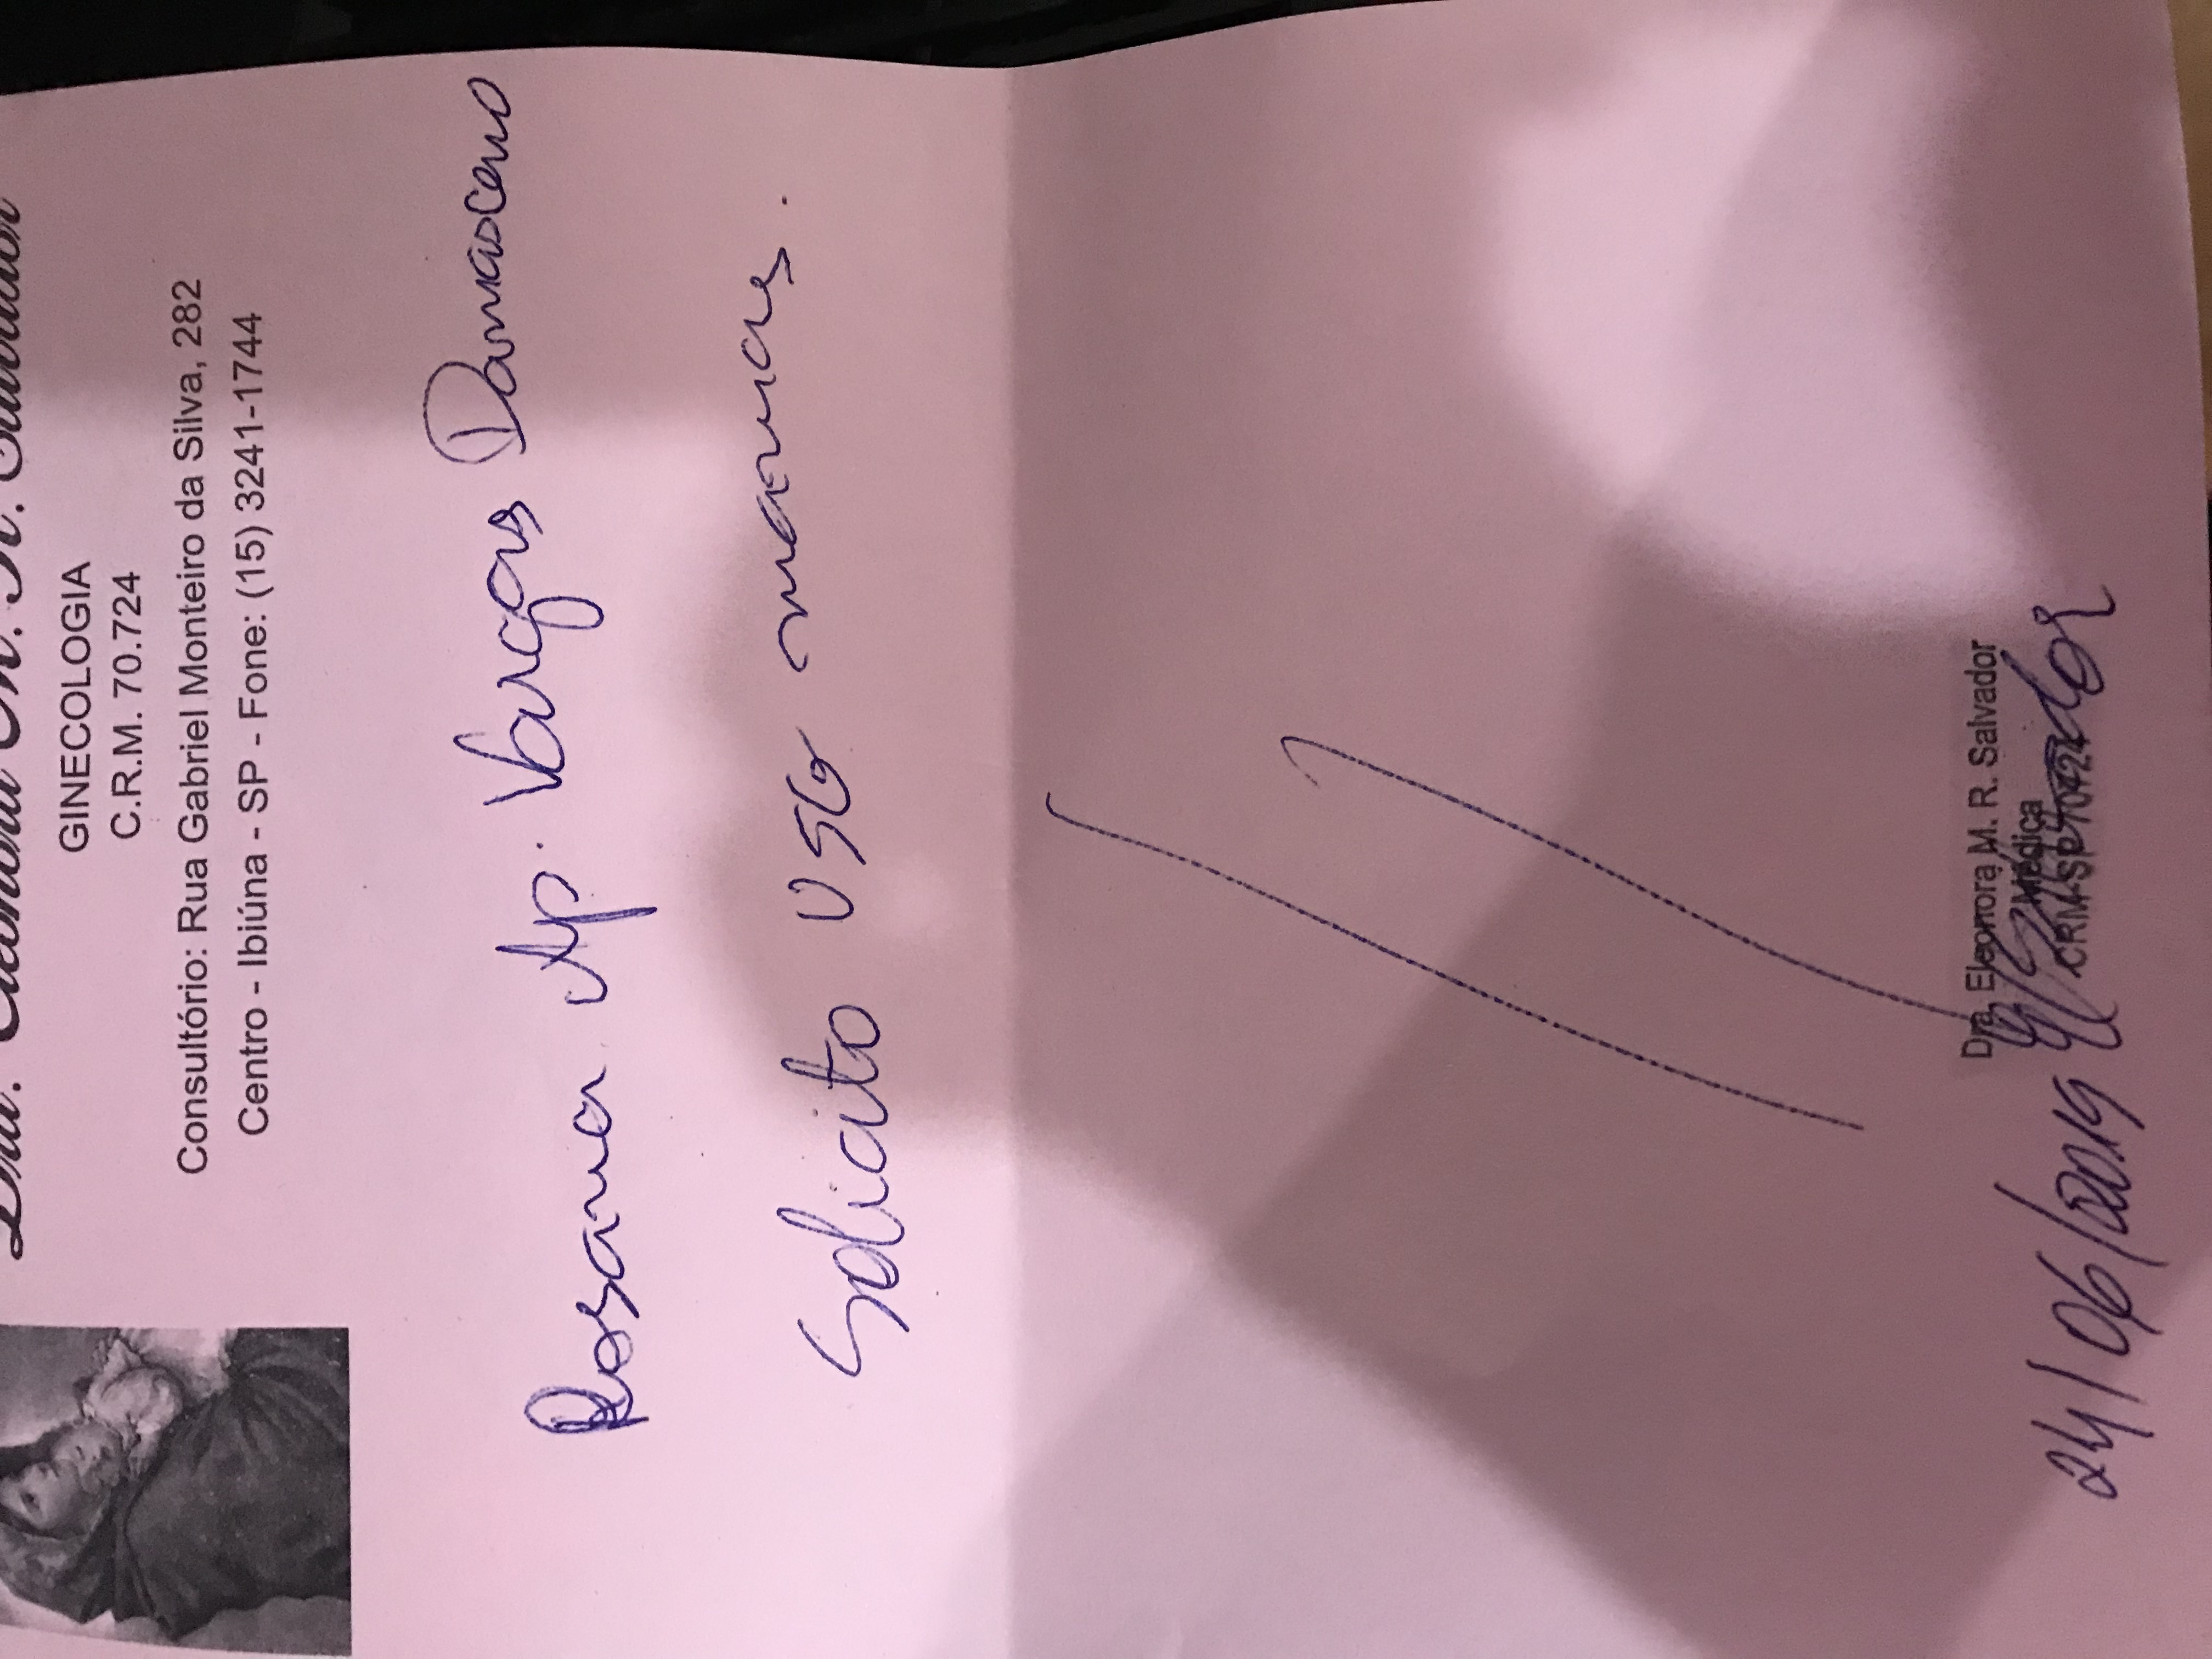 Dra. Eleonora M. R. Salvador
GINECOLOGIA
C.R.M. 70.724
Consultório: Rua Gabriel Monteiro da Silva, 282
Centro - Ibiúna - SP - Fone: (15) 3241-1744
Rosana Ap. Vargas Damasceno
Solicito USG mamas.
Dra. Eleonora M. R. Salvador
Médica
CRM-SP 70724
24/06/2019 Salvador